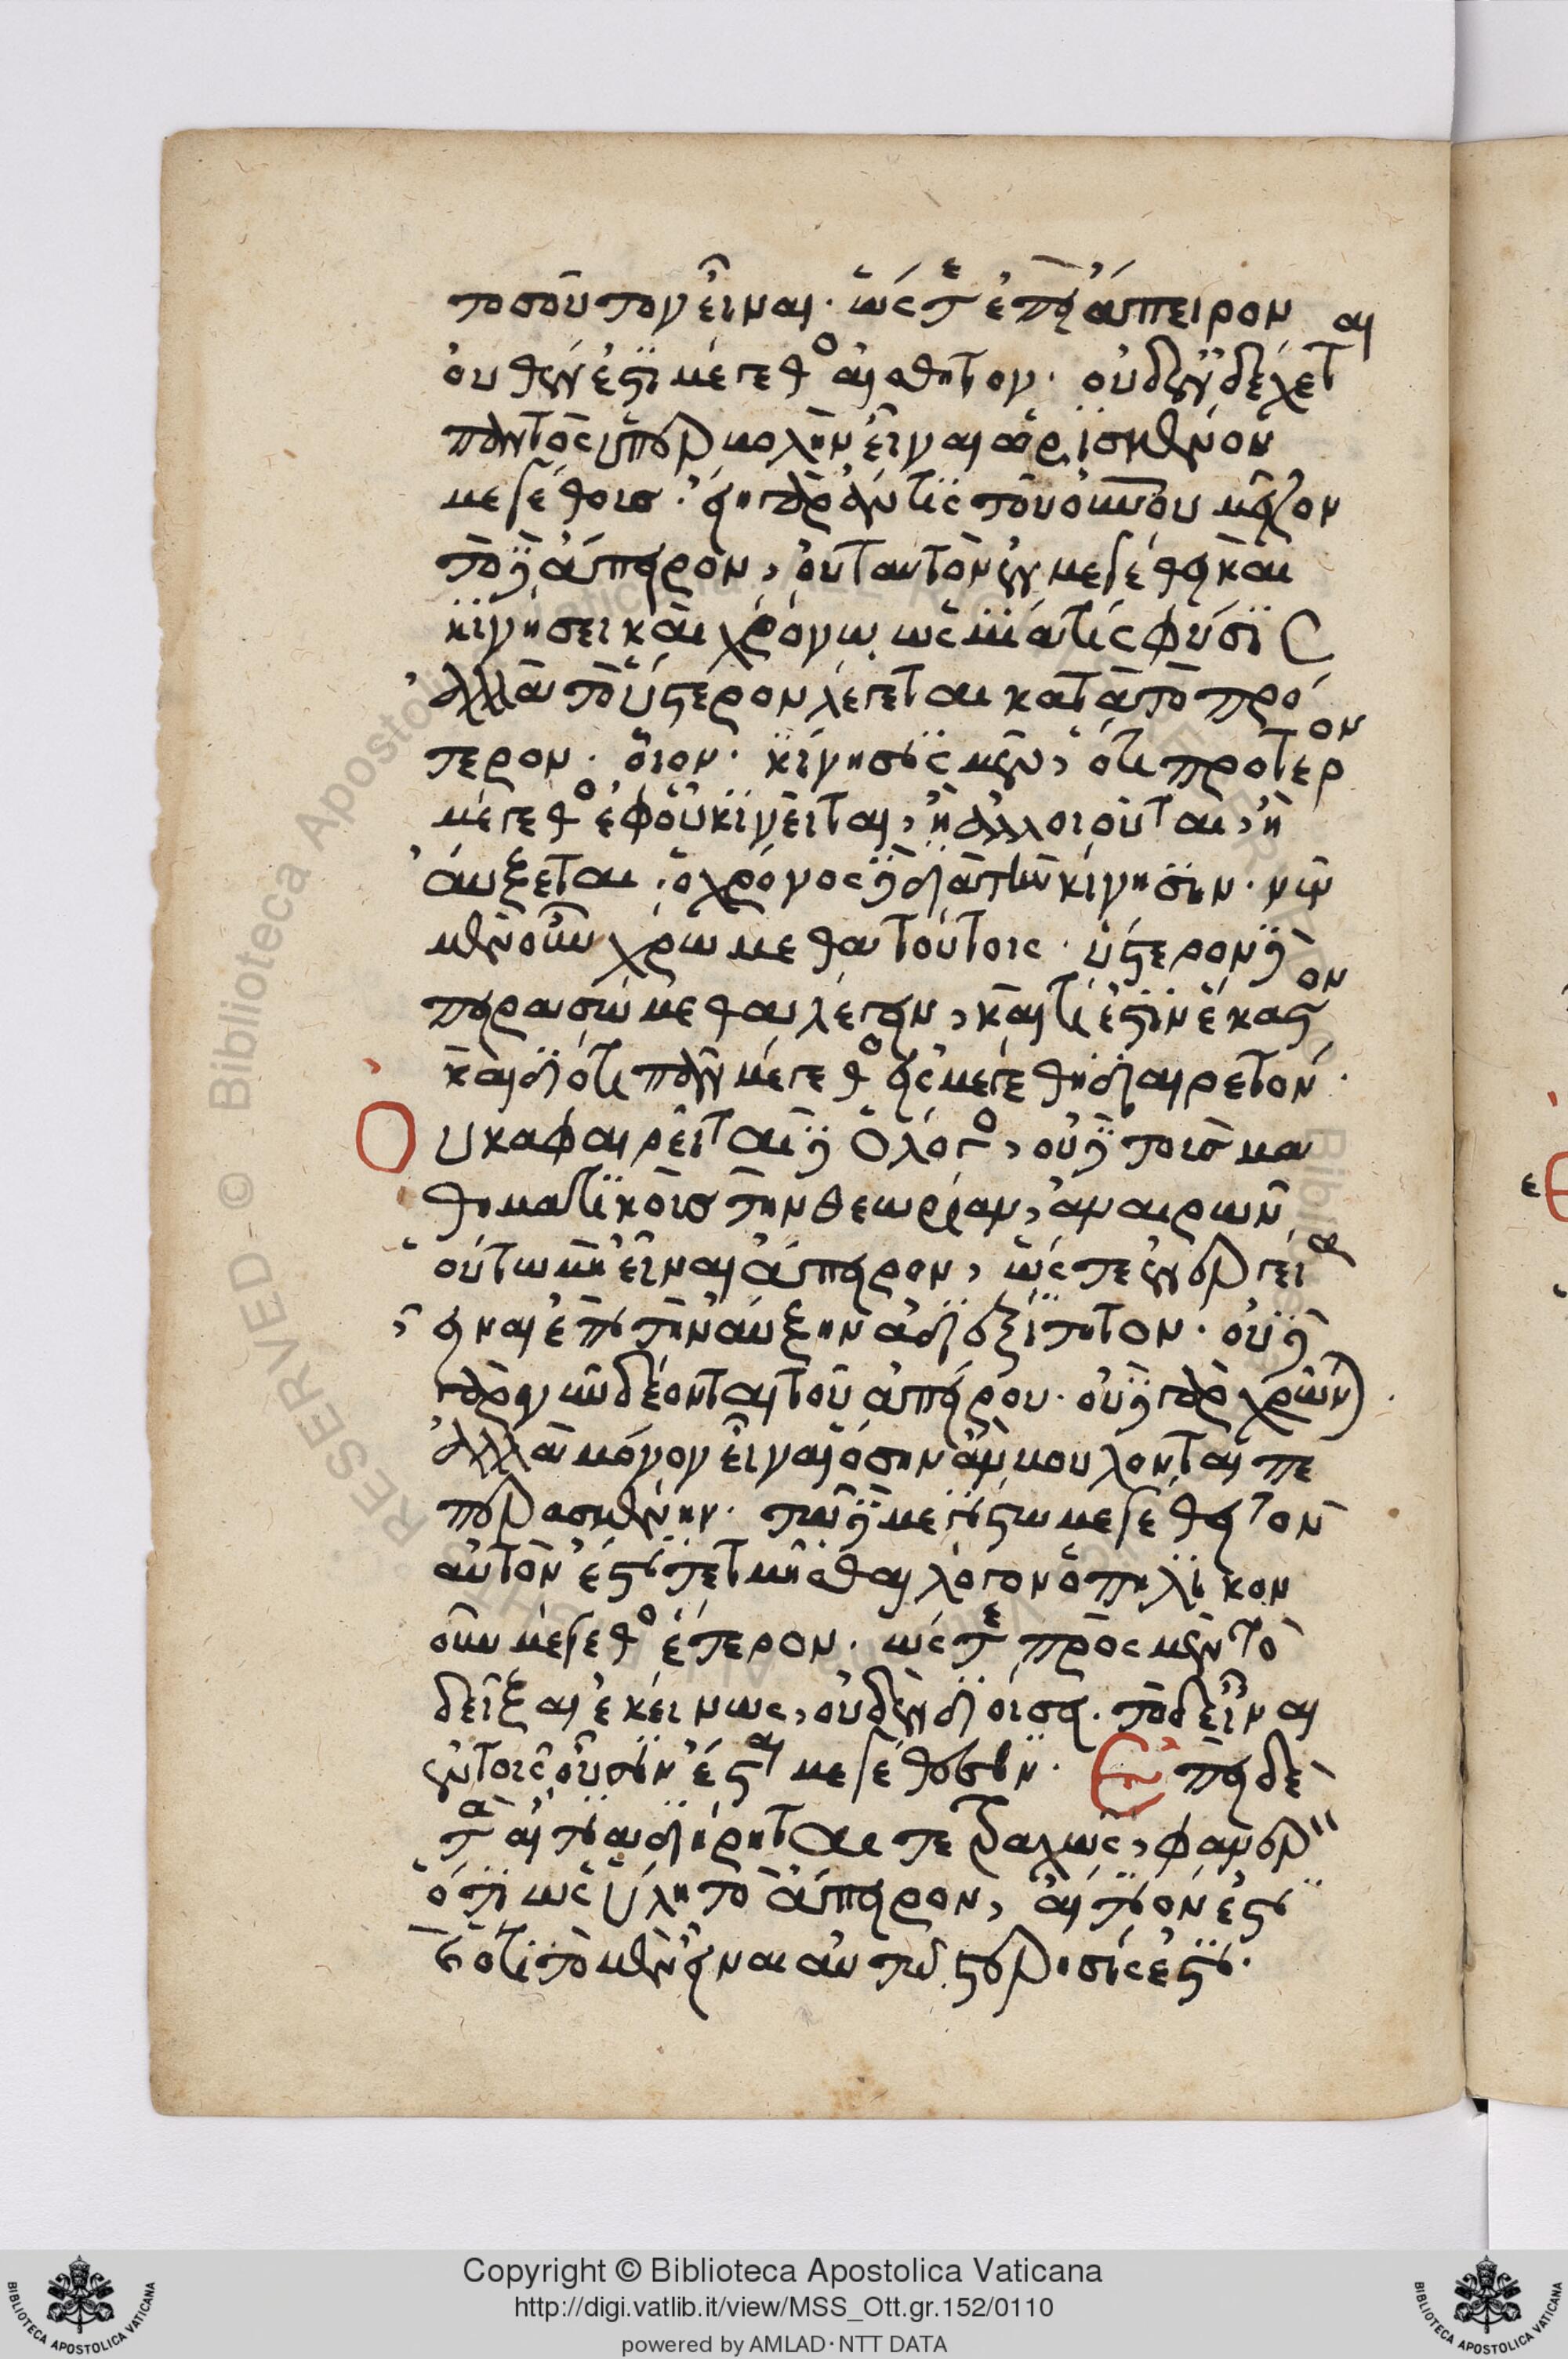 τοσοῦτον εἶναι· ὥστε ἐπεὶ ἄπειρον
οὐθέν ἐστι μέγεθος αἰσθητόν· οὐκ ἐνδέχεται
παντὸς ὑπερβολὴν εἶναι ὡρισμένου
μεγέθους· εἴη γὰρ ἄν τις τοῦ οὐρανοῦ μεῖζον
τὸ δὲ ἄπειρον, οὐ ταυτὸν ἐν μεγέθει καὶ
κινήσει καὶ χρόνω ὡς μία τις φύσις
ἀλλὰ τὸ ὕστερον λέγεται κατὰ τὸ πρό
τερον· οἷον· κίνησις μὲν, ὅτι πρότερον
μέγεθος ἐφ' οὗ κινεῖται, ἢ ἀλλοιοῦται, ἢ
αὔξεται· ὁ χρόνος δὲ διὰ τὴν κίνησιν· νῦν
μὲν οὖν χρώμεθα τούτοις· ὕστερον δὲ
πειρασώμεθα λέγειν, καὶ τί ἐστιν ἕκαστον
καὶ διότι πᾶν μέγεθος εἰς μεγέθη διαιρετόν·
Οὐκ ἀφαιρεῖται δὲ ὁ λόγος, οὐδὲ τοὺς μα
θηματικοὺς τὴν θεωρίαν, ἀναιρῶν
οὕτω μὴ εἶναι ἄπειρον, ὥστε ἐνεργείᾳ
εἶναι ἐπὶ τὴν αὔξην ἀδιεξίτητον· οὐδὲ
γὰρ νῦν δέονται τοῦ ἀπείρου· οὐδὲ γὰρ χρῶνται
ἀλλὰ μόνον εἶναι ὅσην ἂν βούλονται πε
περασμένην· τῷ δὲ μεγίστω μεγέθει τὸν
αὐτὸν ἔστι τετμῆσθαι λόγον ὁπηλίκον
οὖν μέγεθος ἕτερον· ὥστε πρὸς μὲν τὸ
δεῖξαι ἐκείνως, οὐδὲν διοίσει. τὸ δ' εἶναι
ἐν τοῖς οὖσιν ἔσται μεγέθεσιν· Ἐπεὶ δὲ
τὰ αἴτια διῄρηται τετραχῶς, φανερὸν
ὅτι ὡς ὕλη τὸ ἄπειρον, αἴτιόν ἐστι
καὶ ὅτι τὸ μὲν εἶναι αὐτῶ στέρησις ἐστι·
Copyright © Biblioteca Apostolica Vaticana
http://digi.vatlib.it/view/MSS_Ott.gr.152/0110
powered by AMLAD·NTT DATA